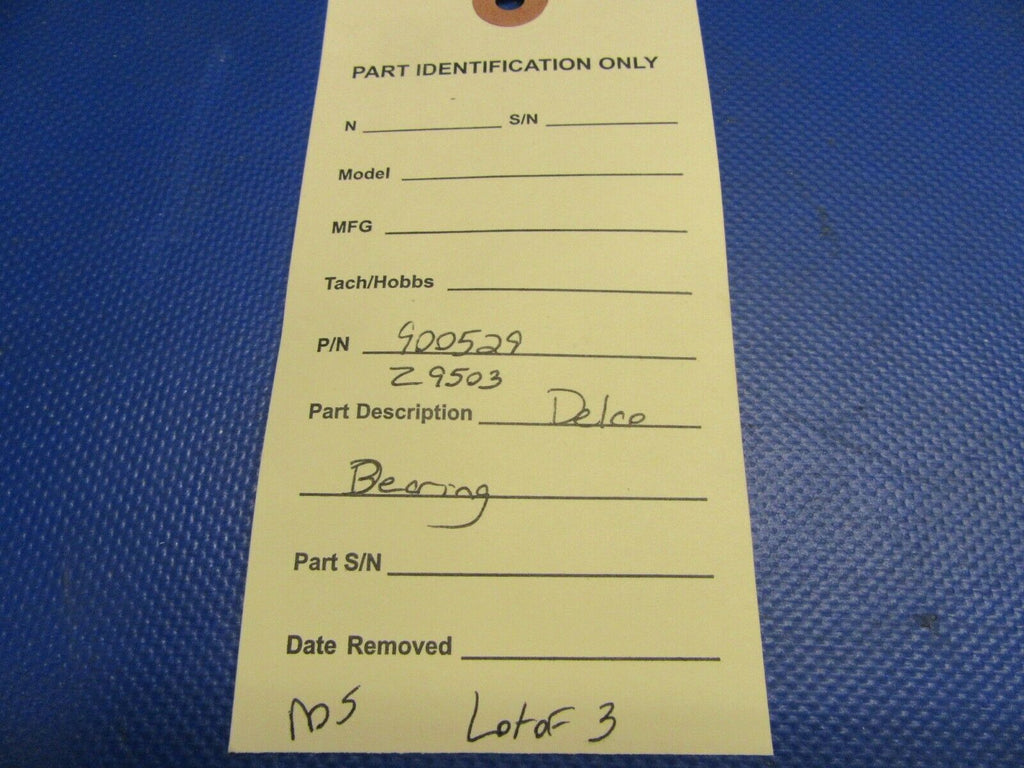 PART IDENTIFICATION ONLY
N S/N
Model
MFG
Tach/Hobbs
P/N 900529
Z9503
Part Description Delco
Bearing
Part S/N
Date Removed
Lot of 3